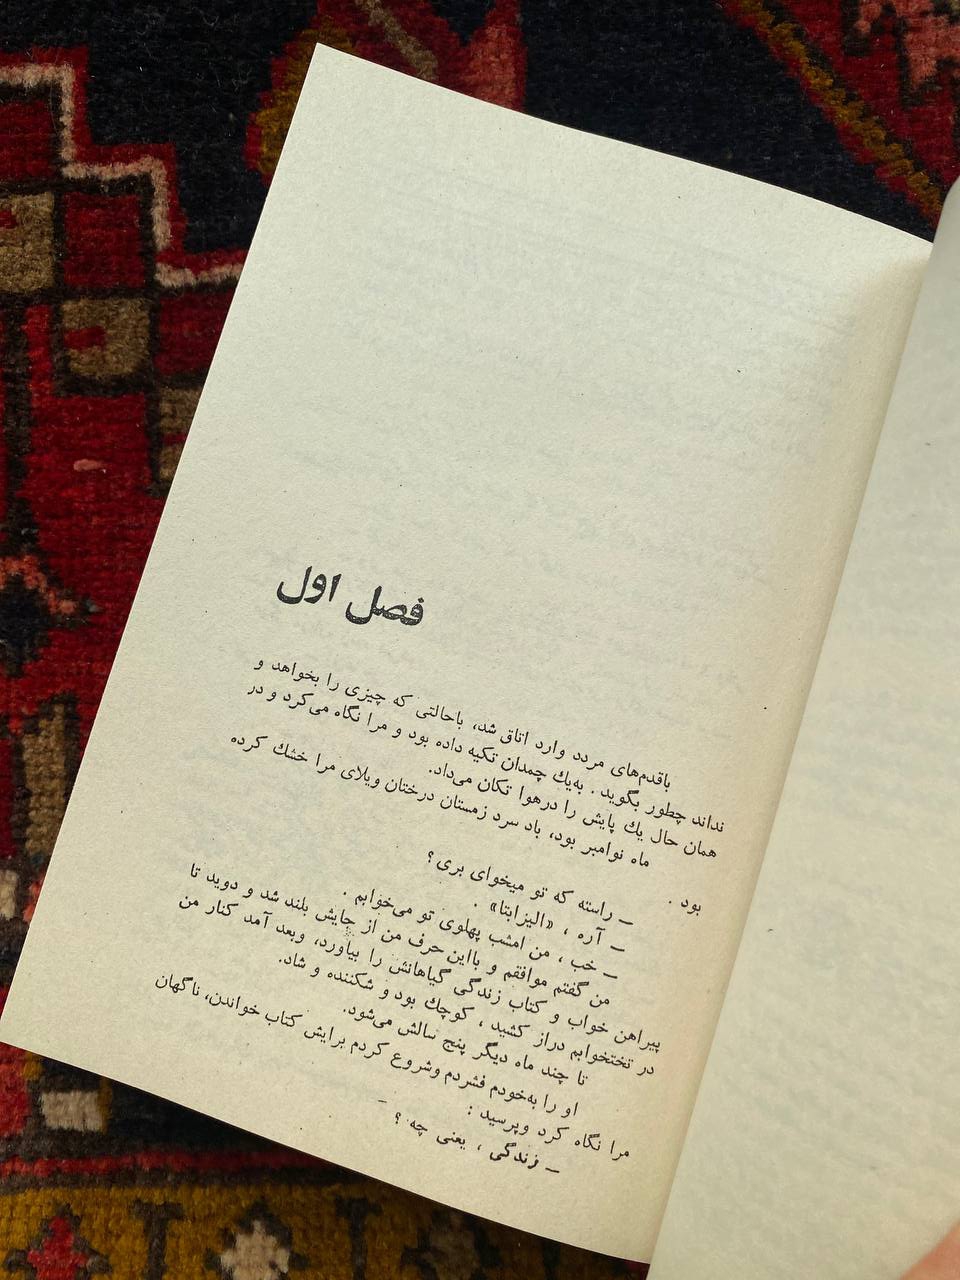 فصل اول
باقدم‌های مردد وارد اتاق شد، باحالتی که چیزی را بخواهد و
نداند چطور بگوید . به‌یك چمدان تکیه داده بود و مرا نگاه می‌کرد و در
همان حال یك پایش را درهوا تکان می‌داد.
ماه نوامبر بود، باد سرد زمستان درختان ویلای مرا خشك کرده
بود .
ــ راسته که تو میخوای بری ؟
ــ آره ، «الیزابتا» .
ــ خب ، من امشب پهلوی تو می‌خوابم .
من گفتم موافقم و بااین حرف من از جایش بلند شد و دوید تا
پیراهن خواب و کتاب زندگی گیاهانش را بیاورد، وبعد آمد کنار من
در تختخوابم دراز کشید ، کوچك بود و شکننده و شاد.
تا چند ماه دیگر پنج سالش می‌شود.
او را به‌خودم فشردم وشروع کردم برایش کتاب خواندن، ناگهان
مرا نگاه کرد وپرسید :
ــ زندگی ، یعنی چه ؟